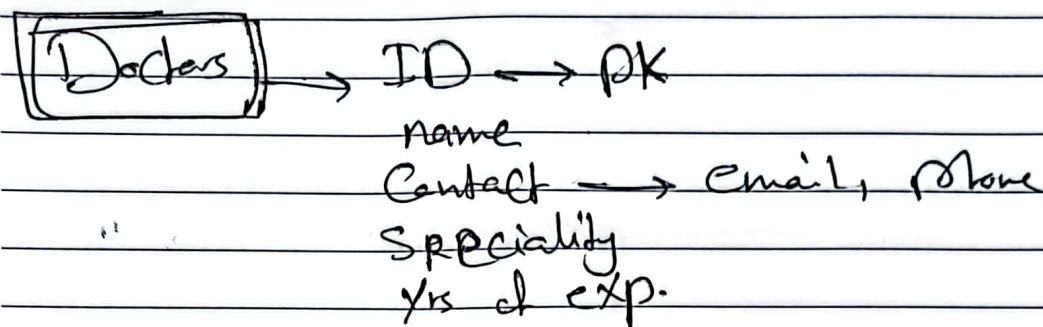 Doctors → ID ↔ PK
name
Contact → email, phone
Speciality
Yrs of exp.